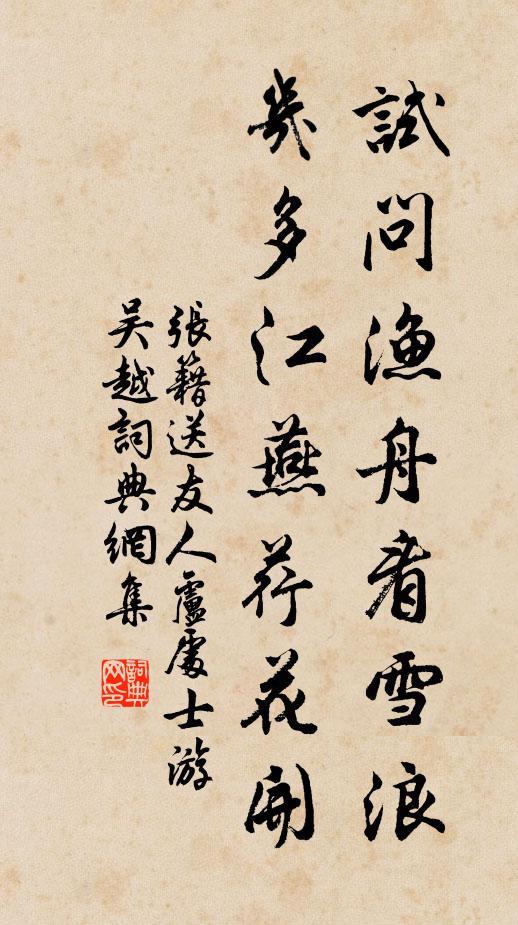 試問漁舟看雪浪
幾多江燕荇花開
張籍送友人盧處士游
吴越詞典網集
詞典
网印